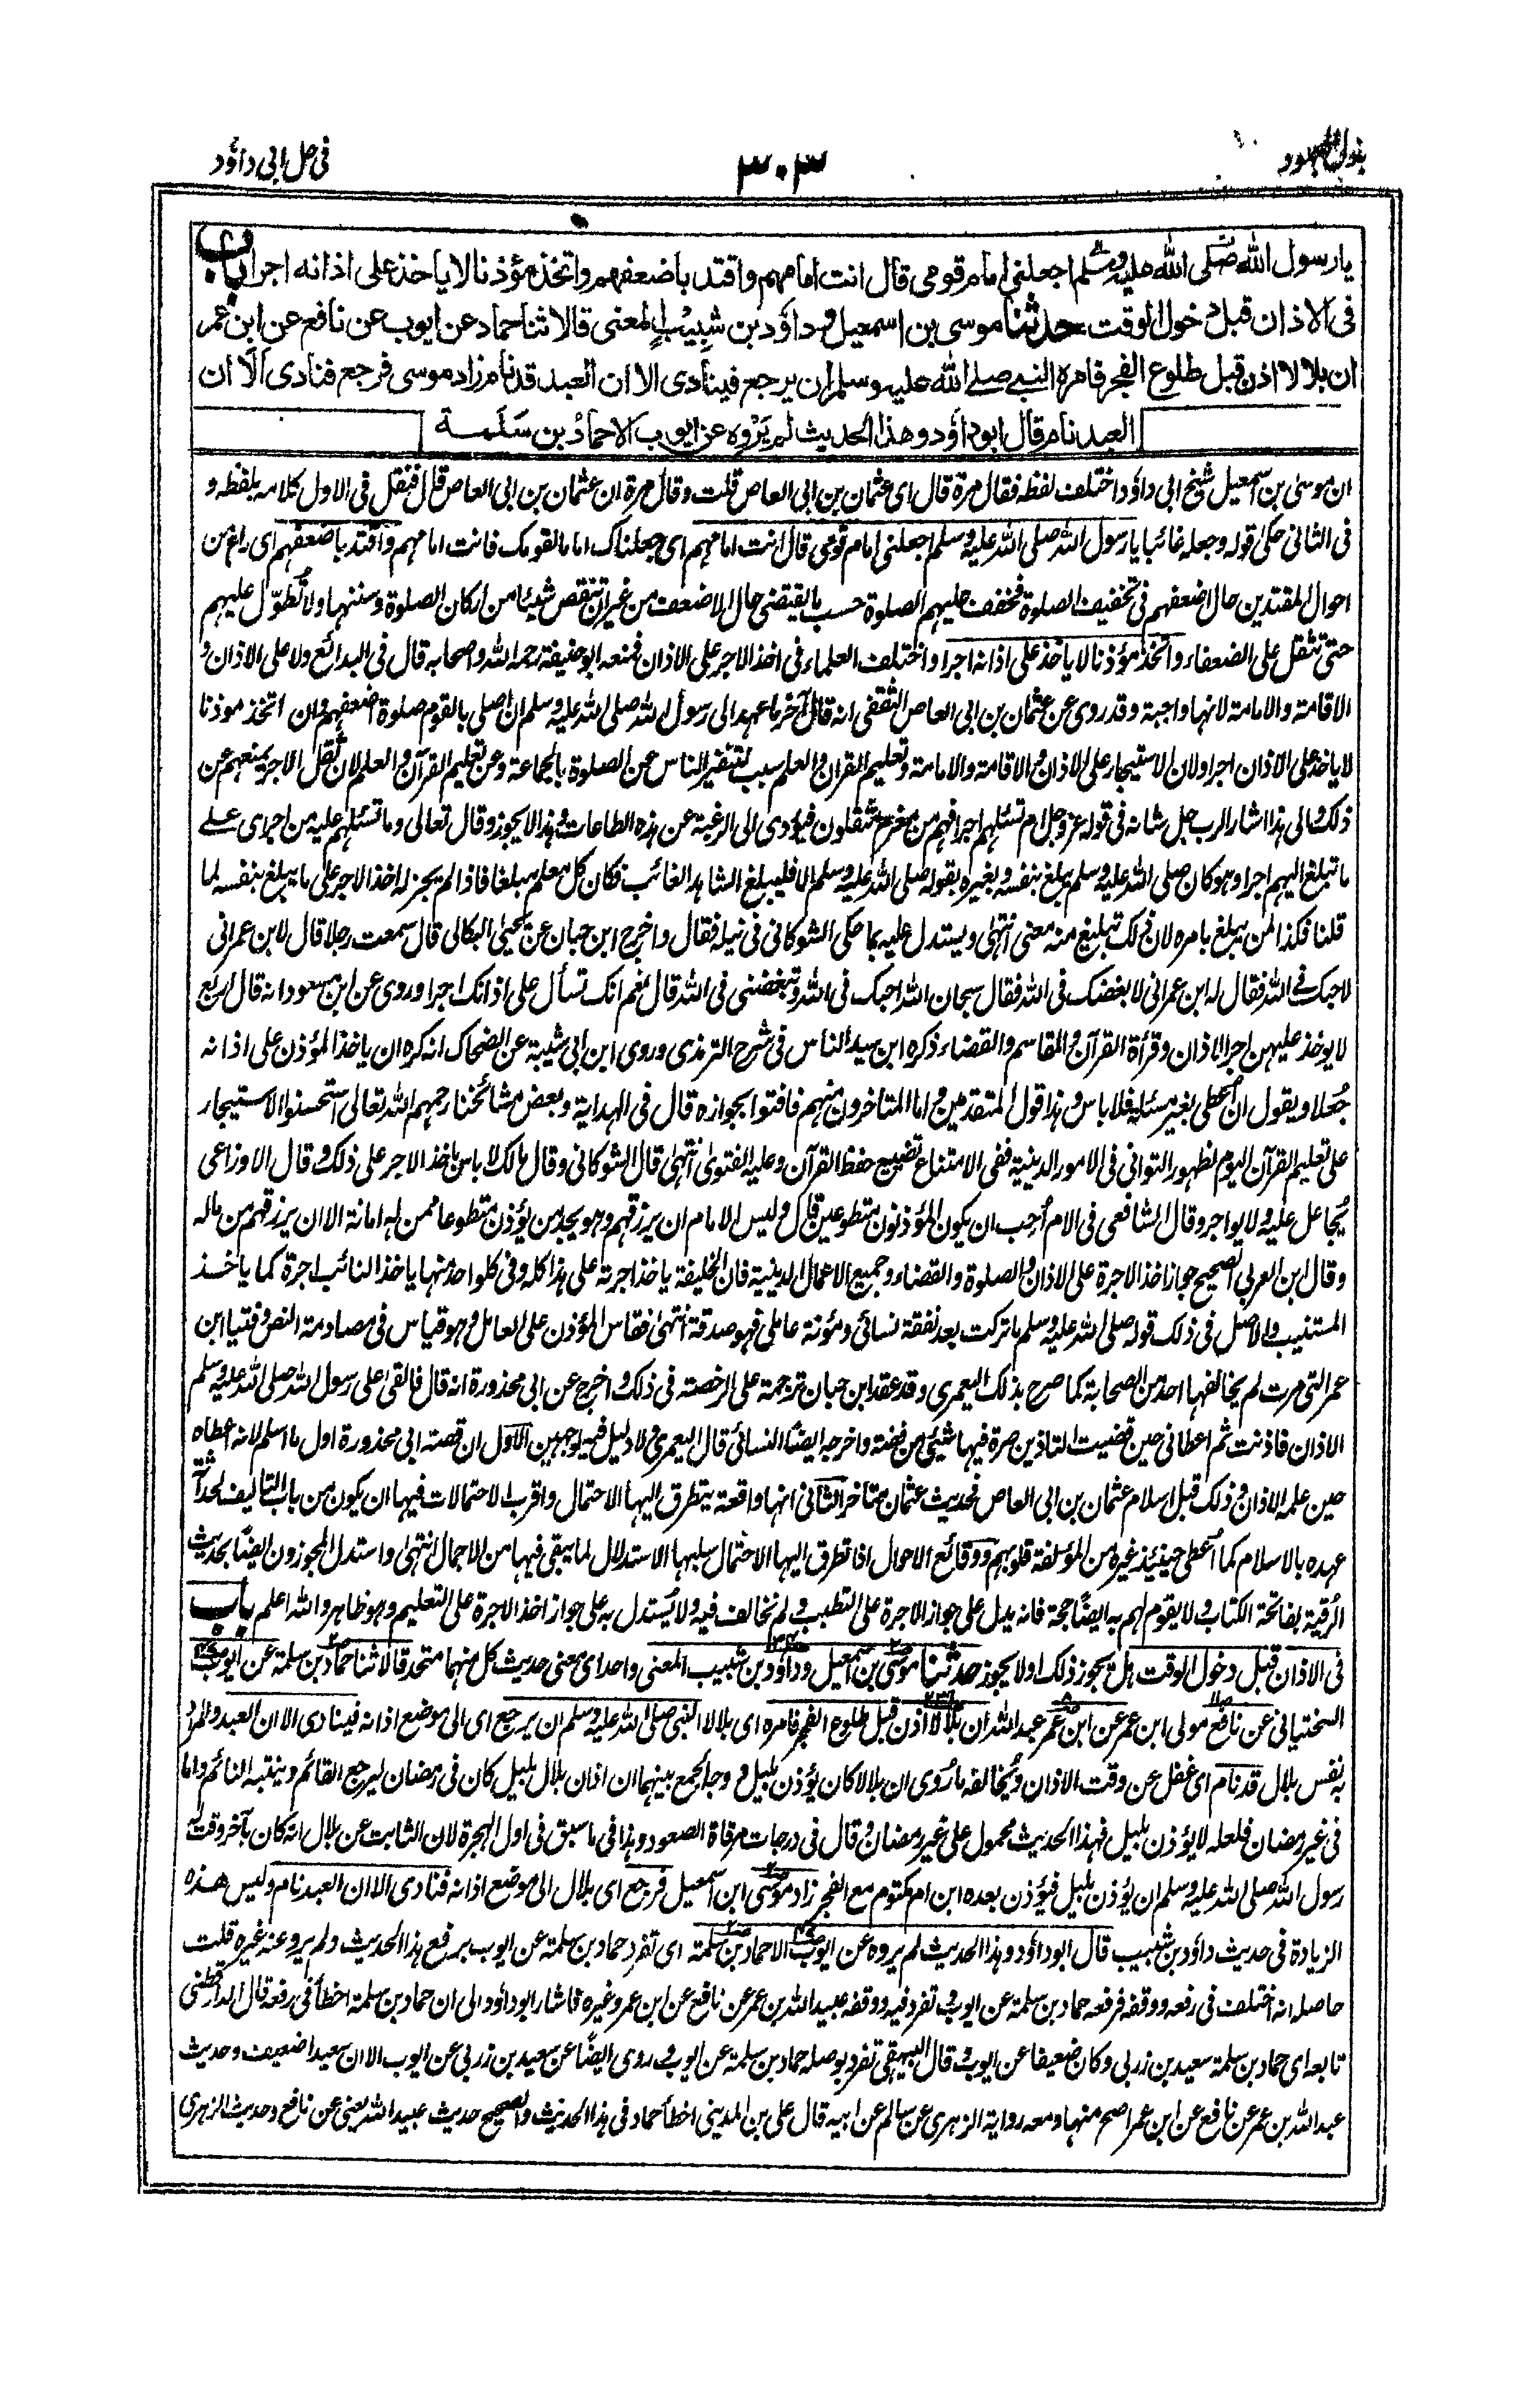 بذل المجهود
٣٠٣
فى حل ابى داؤد
يا رسول الله صلى الله عليه وسلم اجعلنى امام قومى قال انت امامهم واقتد باضعفهم واتخذ مؤذنا لا ياخذ على اذانه اجرا باب
فى الاذان قبل دخول الوقت حدثنا موسى بن اسمعيل وداؤد بن شبيب المعنى قالا ثنا حماد عن ايوب عن نافع عن ابن عمر
ان بلالا اذن قبل طلوع الفجر فامره النبى صلى الله عليه وسلم ان يرجع فينادى الا ان العبد قد نام زاد موسى فرجع فنادى ألا ان
العبد نام قال ابوداؤد وهذا الحديث لم يَرْوِه عن ايوب الا حماد بن سَلَمة
ان موسى بن اسمعيل شيخ ابى داؤد اختلف لفظه فقال مرة قال اى عثمان بن ابى العاص قلت وقال مرة ان عثمان بن ابى العاص قال فنقل فى الاول كلامه بلفظه و
فى الثانى حكى قوله وجعله غائبا يا رسول الله صلى الله عليه وسلم اجعلنى امام قومى قال انت امامهم اى جعلناك اماما لقومك فانت امامهم واقتد باضعفهم اى راع من
احوال المقتدين حال اضعفهم فى تخفيف الصلوة فخفف عليهم الصلوة حسب ما يقتضى حال الاضعف من غير ان تنقص شيئا من اركان الصلوة وسننها ولا تُطوّل عليهم
حتى تثقل على الضعفاء واتخذ مؤذنا لا ياخذ على اذانه اجرا واختلف العلماء فى اخذ الاجر على الاذان فمنعه ابو حنيفة رحمه الله واصحابه قال فى البدائع ولا على الاذان و
الاقامة والامامة لانها واجبة وقد روى عن عثمان بن ابى العاص الثقفى انه قال آخر ما عهد الى رسول الله صلى الله عليه وسلم ان اصلى بالقوم صلوة اضعفهم وان اتخذ مؤذنا
لا ياخذ على الاذان اجرا ولان الاستيجار على الاذان والاقامة والامامة وتعليم القرآن والعلم سبب لتنفير الناس عن الصلوة بالجماعة وعن تعليم القرآن والعلم لان ثقل الاجر يمنعهم عن
ذلك والى هذا اشار الرب جل شانه فى قوله عز وجل ام تسئلهم اجرا فهم من مغرم مثقلون فيؤدى الى الرغبة عن هذه الطاعات وهذا لا يجوز وقال تعالى وما تسئلهم عليه من اجر اى على
ما تبلغ اليهم اجرا وهو كان صلى الله عليه وسلم يبلغ بنفسه وبغيره بقوله صلى الله عليه وسلم الا فليبلغ الشاهد الغائب فكان كل معلم مبلغا فاذا لم يجز له اخذ الاجر على ما يبلغ بنفسه لما
قلنا فكذا لمن يبلغ بامره لان ذلك تبليغ منه معنى انتهى ويستدل عليه بما حكى الشوكانى فى نيله فقال واخرج ابن حبان عن يحيى البكالى قال سمعت رجلا قال لابن عمر انى
لاحبك فى الله فقال له ابن عمر انى لابغضك فى الله فقال سبحان الله احبك فى الله وتبغضنى فى الله قال نعم انك تسأل على اذانك اجرا وروى عن ابن مسعود انه قال اربع
لا يوخذ عليهن اجر الاذان وقرأة القرآن والمقاسم والقضاء ذكره ابن سيد الناس فى شرح الترمذى وروى ابن ابى شيبة عن الضحاك انه كره ان ياخذ المؤذن على اذانه
جُعلا ويقول ان اُعطى بغير مسئلة فلا باس وهذا قول المتقدمين واما المتاخرون منهم فافتوا بجوازه قال فى الهداية وبعض مشائخنا رحمهم الله تعالى استحسنوا الاستيجار
على تعليم القرآن اليوم لظهور التوانى فى الامور الدينية ففى الامتناع تضييع حفظ القرآن وعليه الفتوى انتهى قال الشوكانى وقال مالك لا باس باخذ الاجر على ذلك وقال الاوزاعى
يُجاعل عليه ولا يواجر وقال الشافعى فى الام اُحب ان يكون المؤذنون متطوعين قال وليس للامام ان يرزقهم وهو يجد من يؤذن متطوعا ممن له امانة الا ان يرزقهم من ماله
وقال ابن العربى الصحيح جواز اخذ الاجرة على الاذان والصلوة والقضاء وجميع الاعمال الدينية فان الخليفة ياخذ اجرته على هذا كله وفى كل واحد منها ياخذ النائب اجرة كما ياخذ
المستنيب والاصل فى ذلك قوله صلى الله عليه وسلم ما تركت بعد نفقة نسائى ومئونة عاملى فهو صدقة انتهى فقاس المؤذن على العامل وهو قياس فى مصادمة النص وفتيا ابن
عمر التى مرت لم يخالفها احد من الصحابة كما صرح بذلك اليعمرى وقد عقد ابن حبان ترجمة على الرخصة فى ذلك واخرج عن ابى محذورة انه قال فالقى على رسول الله صلى الله عليه وسلم
الاذان فاذنت ثم اعطانى حين قضيت التاذين صرة فيها شيئ من فضة واخرجه ايضًا النسائى قال اليعمرى ولا دليل فيه لوجهين الاول ان قصة ابى محذورة اول ما اسلم لانه اعطاه
حين علمه الاذان وذلك قبل اسلام عثمان بن ابى العاص فحديث عثمان متاخر الثانى انها واقعة يتطرق اليها الاحتمال واقرب الاحتمالات فيها ان يكون من باب التاليف لحداثة
عهده بالاسلام كما اُعطى حينئذ غيره من المؤلفة قلوبهم ووقائع الاحوال اذا تطرق اليها الاحتمال سلبها الاستدلال لما يبقى فيها من الاجمال انتهى واستدل المجوزون ايضًا بحديث
الرُقية بفاتحة الكتاب ولا يقوم لهم به ايضًا حجة فانه يدل على جواز الاجرة على التطبب ولم نخالف فيه ولا يُستدل به على جواز اخذ الاجرة على التعليم وهو ظاهر والله اعلم باب
فى الاذان قبل دخول الوقت هل يجوز ذلك اولا يجوز حدثنا موسى بن اسمعيل وداؤد بن شبيب المعنى واحد اى معنى حديث كل منهما متحد قالا ثنا حماد بن سلمة عن ايوب
السختيانى عن نافع مولى ابن عمر عن ابن عمر عبد الله ان بلالا اذن قبل طلوع الفجر فامره اى بلالا النبى صلى الله عليه وسلم ان يرجع اى الى موضع اذانه فينادى الا ان العبد والمراد
به نفس بلال قد نام اى غفل عن وقت الاذان ويُخالفه ما رُوى ان بلالا كان يؤذن بليل ووجه الجمع بينهما ان اذان بلال بليل كان فى رمضان ليرجع القائم وينتبه النائم واما
فى غير رمضان فلعله لا يؤذن بليل فهذا الحديث محمول على غير رمضان وقال فى درجات مرقاة الصعود وهذا فى ما سبق فى اول الهجرة لان الثابت عن بلال انه كان بآخر وقت
رسول الله صلى الله عليه وسلم ان يؤذن بليل فيؤذن بعده ابن ام مكتوم مع الفجر زاد موسى ابن اسمعيل فرجع اى بلال الى موضع اذانه فنادى الا ان العبد نام وليس هذه
الزيادة فى حديث داؤد بن شبيب قال ابوداؤد وهذا الحديث لم يروه عن ايوب الا حماد بن سلمة اى تفرد حماد بن سلمة عن ايوب برفع هذا الحديث ولم يروِ عنه غيره قلت
حاصله انه اختلف فى رفعه ووقفه فرفعه حماد بن سلمة عن ايوب وتفرد فيه ووقفه عبيد الله بن عمر عن نافع عن ابن عمر وغيره فاشار ابوداؤد الى ان حماد بن سلمة اخطأ فى رفعه قال الدارقطنى
تابعه اى حماد بن سلمة سعيد بن زربى وكان ضعيفا عن ايوب وقال البيهقى تفرد بوصله حماد بن سلمة عن ايوب وروى ايضًا عن سعيد بن زربى عن ايوب الا ان سعيدا ضعيف وحديث
عبد الله بن عمر عن نافع عن ابن عمر اصح منها ومعه رواية الزهرى عن سالم عن ابيه قال على بن المدينى اخطأ حماد فى هذا الحديث والصحيح حديث عبيد الله يعنى عن نافع وحديث الزهرى